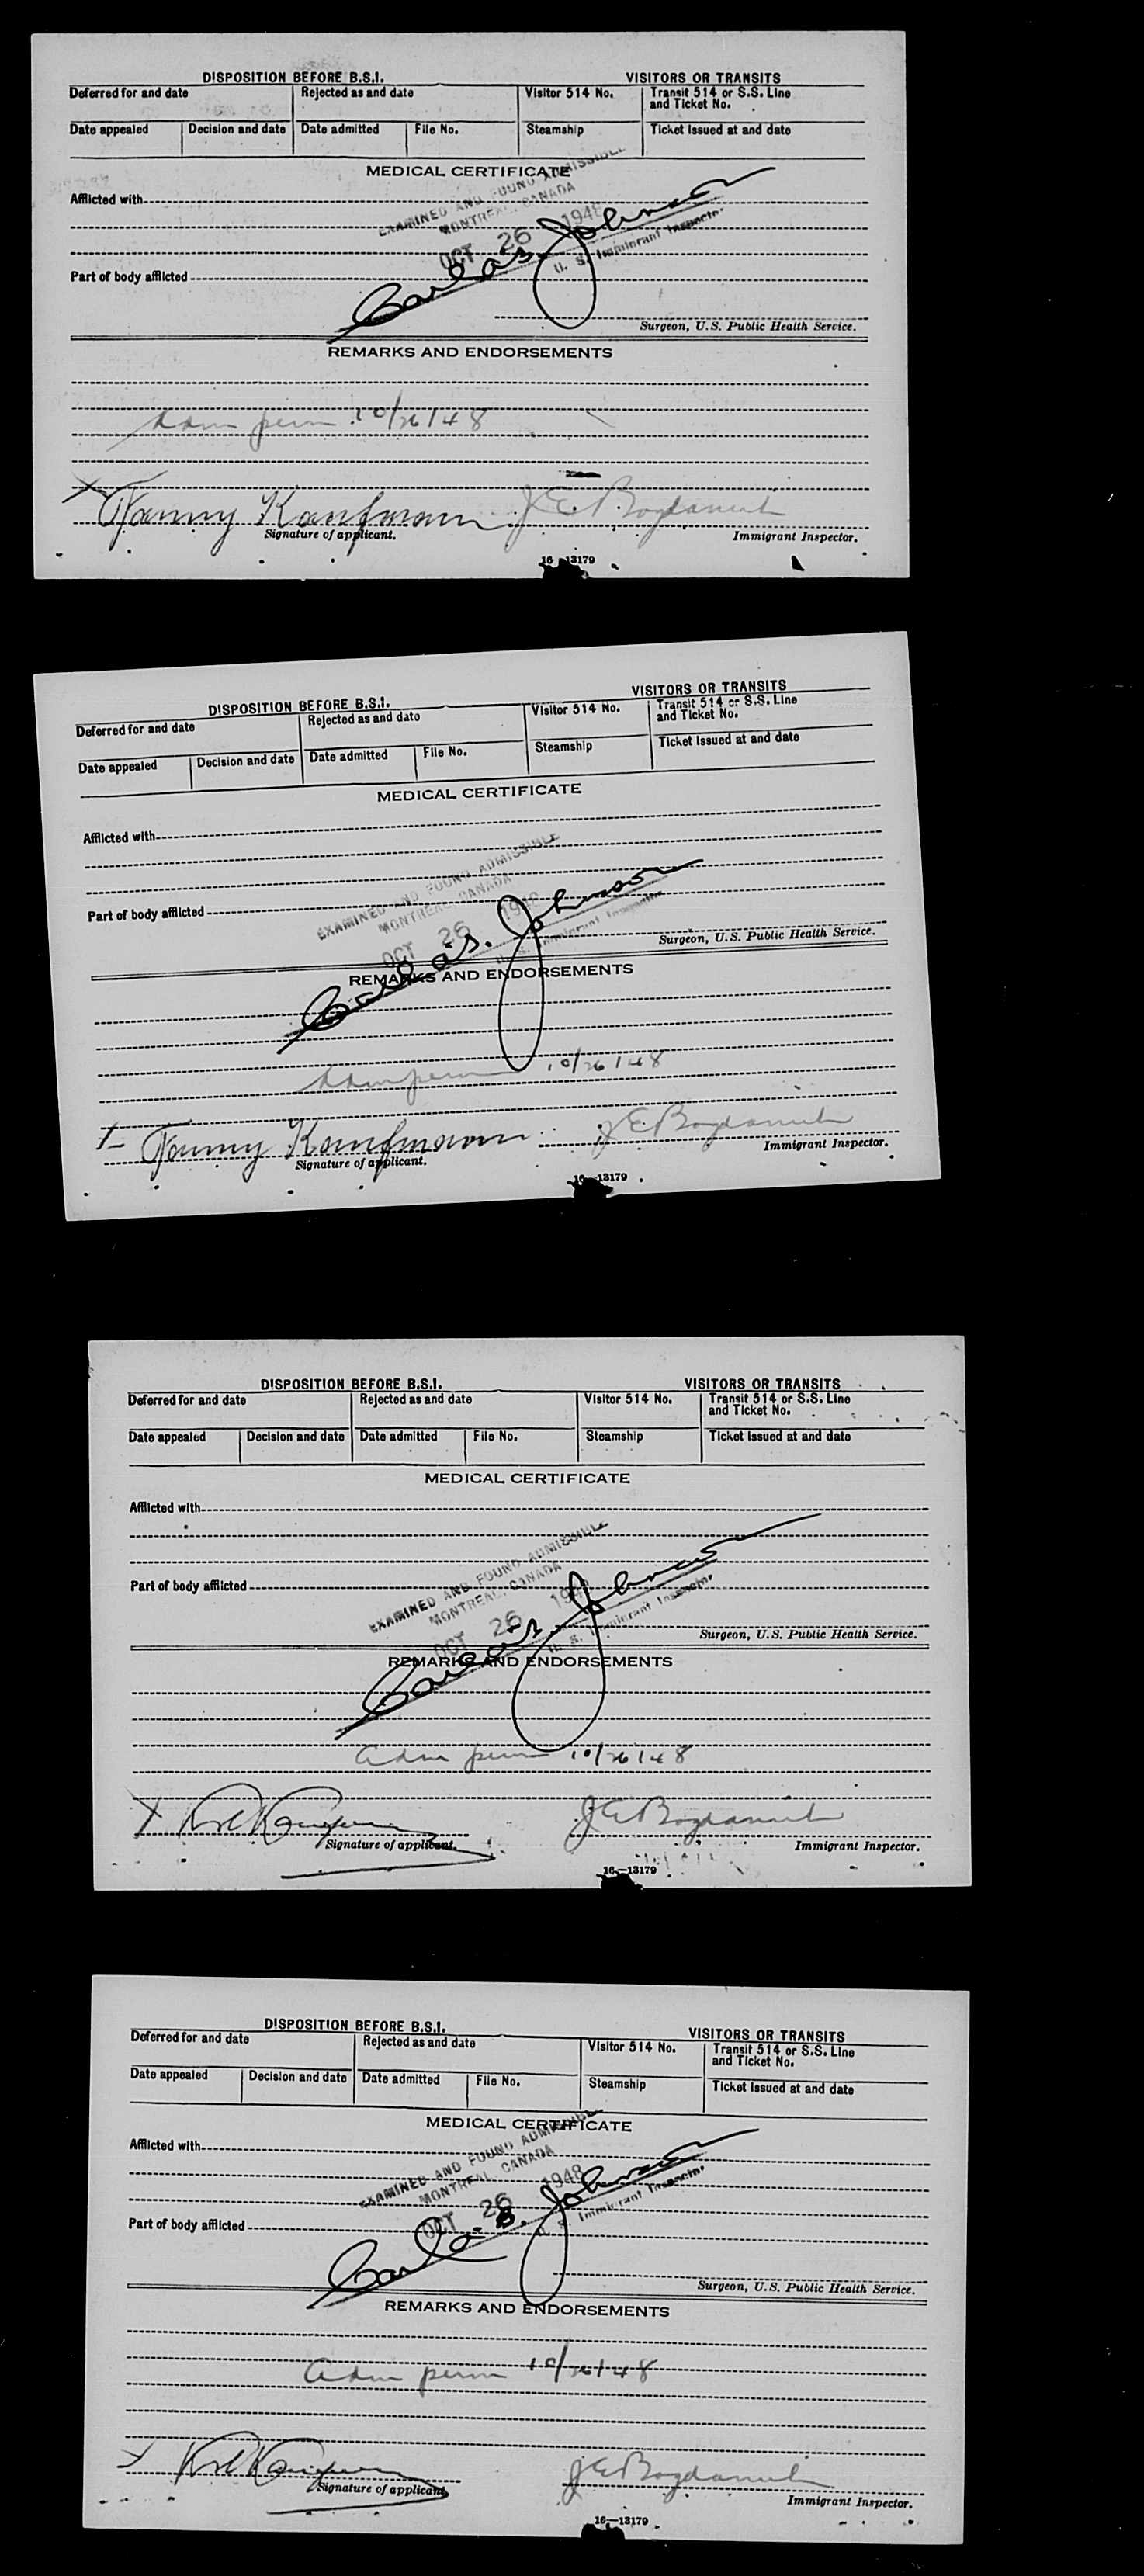 DISPOSITION BEFORE B.S.I. VISITORS OR TRANSITS
Deferred for and date Rejected as and date Visitor 514 No. Transit 514 or S.S. Line and Ticket No.
Date appealed Decision and date Date admitted File No. Steamship Ticket issued at and date
MEDICAL CERTIFICATE
Afflicted with
EXAMINED AND FOUND ADMISSIBLE
MONTREAL, CANADA
OCT 26 1948
Johnson
U. S. Immigrant Inspector
Part of body afflicted
Surgeon, U.S. Public Health Service.
REMARKS AND ENDORSEMENTS
Adm perm 10/26/48
X Fanny Kaufmann
Signature of applicant. Immigrant Inspector.
16—13179
DISPOSITION BEFORE B.S.I. VISITORS OR TRANSITS
Deferred for and date Rejected as and date Visitor 514 No. Transit 514 or S.S. Line and Ticket No.
Date appealed Decision and date Date admitted File No. Steamship Ticket issued at and date
MEDICAL CERTIFICATE
Afflicted with
EXAMINED AND FOUND ADMISSIBLE
MONTREAL, CANADA
OCT 26 1948
Johnson
U. S. Immigrant Inspector
Part of body afflicted
Surgeon, U.S. Public Health Service.
REMARKS AND ENDORSEMENTS
Adm perm 10/26/48
X Fanny Kaufmann
Signature of applicant. Immigrant Inspector.
16—13179
DISPOSITION BEFORE B.S.I. VISITORS OR TRANSITS
Deferred for and date Rejected as and date Visitor 514 No. Transit 514 or S.S. Line and Ticket No.
Date appealed Decision and date Date admitted File No. Steamship Ticket issued at and date
MEDICAL CERTIFICATE
Afflicted with
EXAMINED AND FOUND ADMISSIBLE
MONTREAL, CANADA
OCT 26 1948
Johnson
U. S. Immigrant Inspector
Part of body afflicted
Surgeon, U.S. Public Health Service.
REMARKS AND ENDORSEMENTS
adm perm 10/26/48
X
Signature of applicant. Immigrant Inspector.
16—13179
DISPOSITION BEFORE B.S.I. VISITORS OR TRANSITS
Deferred for and date Rejected as and date Visitor 514 No. Transit 514 or S.S. Line and Ticket No.
Date appealed Decision and date Date admitted File No. Steamship Ticket issued at and date
MEDICAL CERTIFICATE
Afflicted with
EXAMINED AND FOUND ADMISSIBLE
MONTREAL, CANADA
OCT 26 1948
Johnson
U. S. Immigrant Inspector
Part of body afflicted
Surgeon, U.S. Public Health Service.
REMARKS AND ENDORSEMENTS
adm perm 10/26/48
X
Signature of applicant. Immigrant Inspector.
16—13179